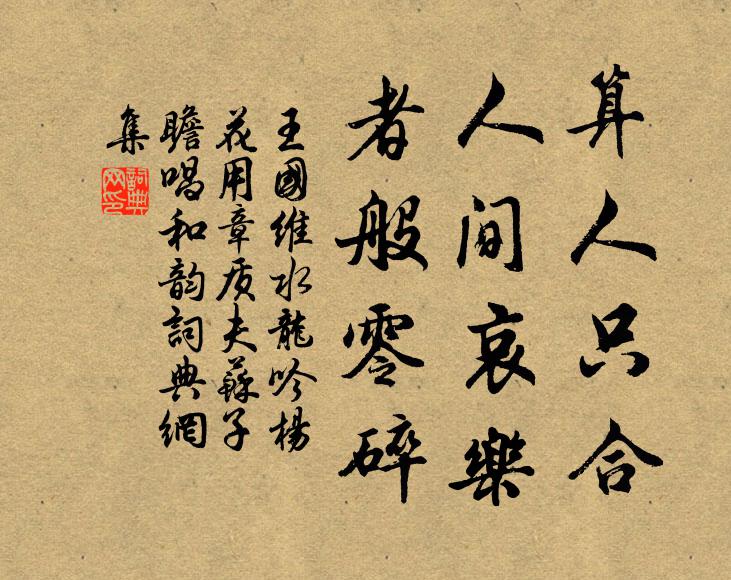 算人只合
人間哀樂
者般零碎
王國維水龍吟楊
花用章质夫蘇子
瞻唱和韵詞典網
集
詞典
网印